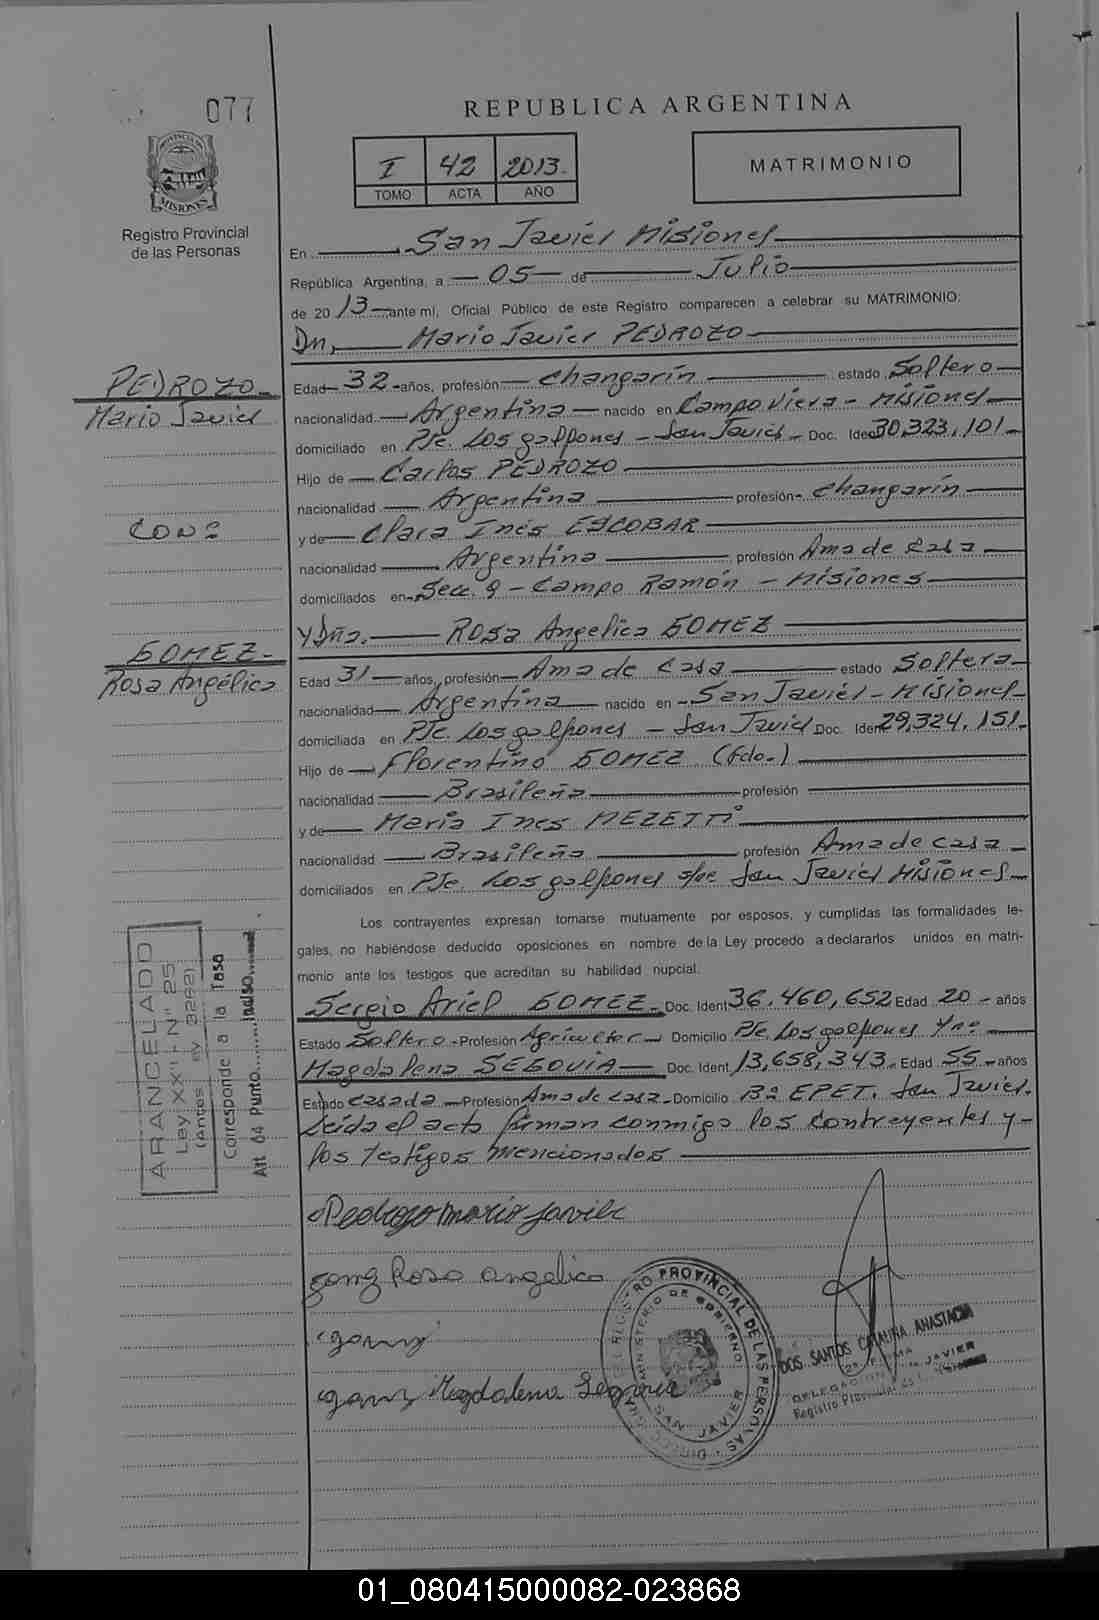 077
REPUBLICA ARGENTINA
I 42 2013.
TOMO ACTA AÑO
MATRIMONIO
PROVINCIA DE
MISIONES
Registro Provincial
de las Personas
En San Javier Misiones
República Argentina, a 05 de Julio
de 2013 ante mí, Oficial Público de este Registro comparecen a celebrar su MATRIMONIO:
Dn, Mario Javier PEDROZO
PEDROZO
Mario Javier
Edad 32 años, profesión Changarín estado Soltero
nacionalidad Argentina nacido en Campo Viera - Misiones
domiciliado en Pje. Los galpones - San Javier Doc. Iden 30,323,101
Hijo de Carlos PEDROZO
nacionalidad Argentina profesión Changarín
CON:
y de Clara Inés ESCOBAR
nacionalidad Argentina profesión Ama de casa
domiciliados en Secc. 9 - Campo Ramón - Misiones
Y Dña. Rosa Angelica GOMEZ
GOMEZ
Rosa Angélica
Edad 31 años, profesión Ama de casa estado Soltera
nacionalidad Argentina nacido en San Javier - Misiones
domiciliada en Pje Los galpones - San Javier Doc. Iden 29,324,151
Hijo de Florentino GOMEZ (fdo.)
nacionalidad Brasileña profesión
y de Maria Ines MEZETTI
nacionalidad Brasileña profesión Ama de casa
domiciliados en Pje Los galpones San Javier Misiones
Los contrayentes expresan tomarse mutuamente por esposos, y cumplidas las formalidades le-
gales, no habiéndose deducido oposiciones en nombre de la Ley procedo a declararlos unidos en matri-
monio ante los testigos que acreditan su habilidad nupcial.
Sergio Ariel GOMEZ Doc. Ident 36.460,652 Edad 20 años
Estado Soltero Profesión Agricultor Domicilio Pje. Los galpones
Magdalena SEGOVIA Doc. Ident. 13,658,343 Edad 55 años
Estado casada Profesión Ama de casa Domicilio Bº EPET. San Javier.
Leida el acta firman conmigo los contrayentes y
los testigos mencionados
ARANCELADO
Ley XXII - Nº 25
(Antes 3262)
Corresponde a la Tasa
Art 64 Punto Inciso
Pedrozo mario Javier
Rosa angelica
Magdalena Segovia
REGISTRO PROVINCIAL DE LAS PERSONAS
MINISTERIO DE GOBIERNO
SAN JAVIER
DOS SANTOS CATALINA ANASTACIA
DELEGACION JAVIER
Registro Provincial
01_080415000082-023868